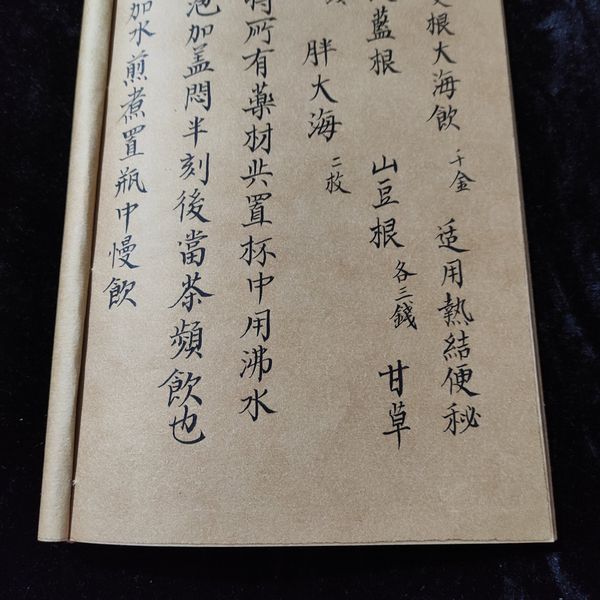 根大海飲 千金 适用熱結便秘
藍根 山豆根 各三錢 甘草
胖大海 二枚
所有藥材共置杯中用沸水
泡加盖悶半刻後當茶頻飲也
加水煎煮置瓶中慢飲